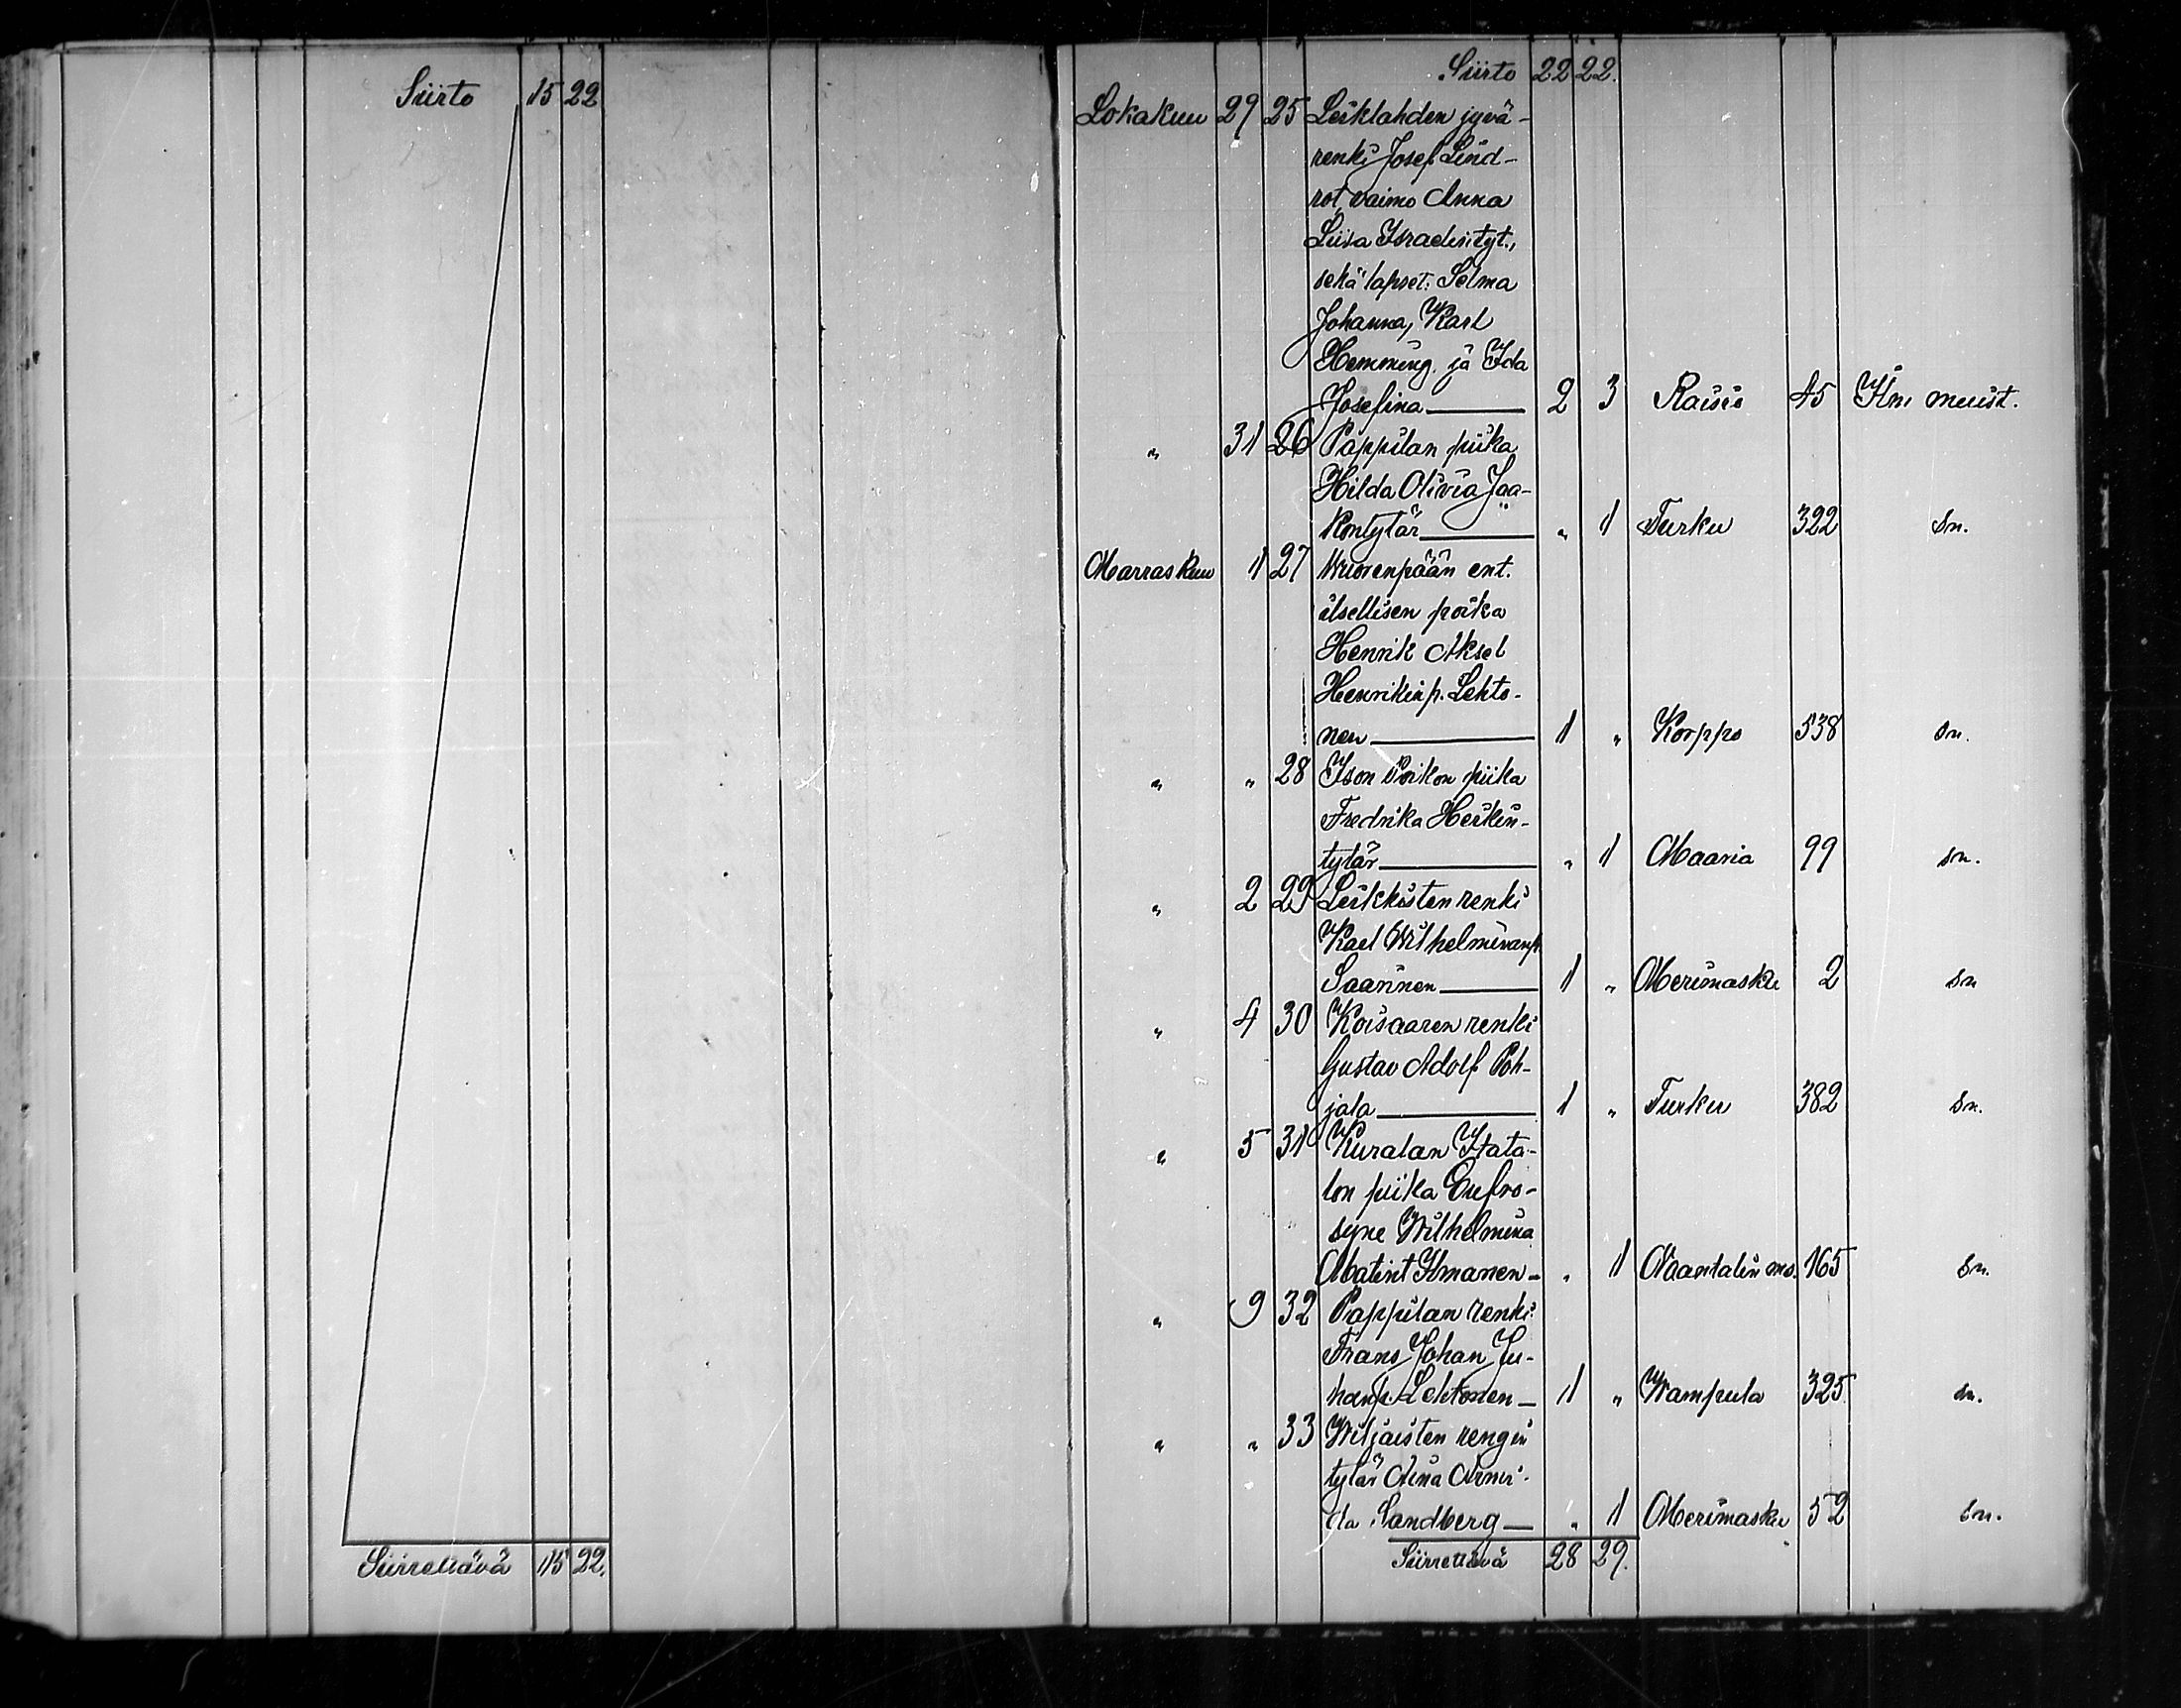 Siirto 15 22
Siirrettävä 15 22.
Siirto 22 22.
Lokakuu 29 25 Leiklahden jyvä-
renki Josef Lind-
rot, vaimo Anna
Liisa Israelintyt.,
sekä lapset: Selma
Johanna, Karl
Hemming ja Ida
Josefina 2 3 Raisio 45 Ilm. muist.
" 31 26 Pappilan piika
Hilda Olivia Jaa-
kontytär " 1 Turku 322 Sn.
Marraskuu 1 27 Wuorenpään ent.
itsellisen poika
Henrik Aksel
Henrikinp. Lehto-
nen 1 " Korppo 538 sn.
" " 28 Ison Poikon piika
Fredrika Heikin-
tytär " 1 Maaria 99 sn.
" 2 29 Leikkisten renki
Karl Wilhelminanp.
Saarinen 1 " Merimasku 2 sn
" 4 30 Koisaaren renki
Gustav Adolf Poh-
jala 1 " Turku 382 sn.
" 5 31 Kuralan Itata-
lon piika Eufro-
syne Wilhelmina
Matint Ilmanen " 1 Naantalin ms. 165 Sn.
" 9 32 Pappilan renki
Frans Johan Ju-
hanp. Lehtonen 1 " Wampula 325 sn.
" " 33 Wiljaisten rengin
tytär Aina Armi-
da Sandberg " 1 Merimasku 52 sn.
Siirrettävä 28 29.